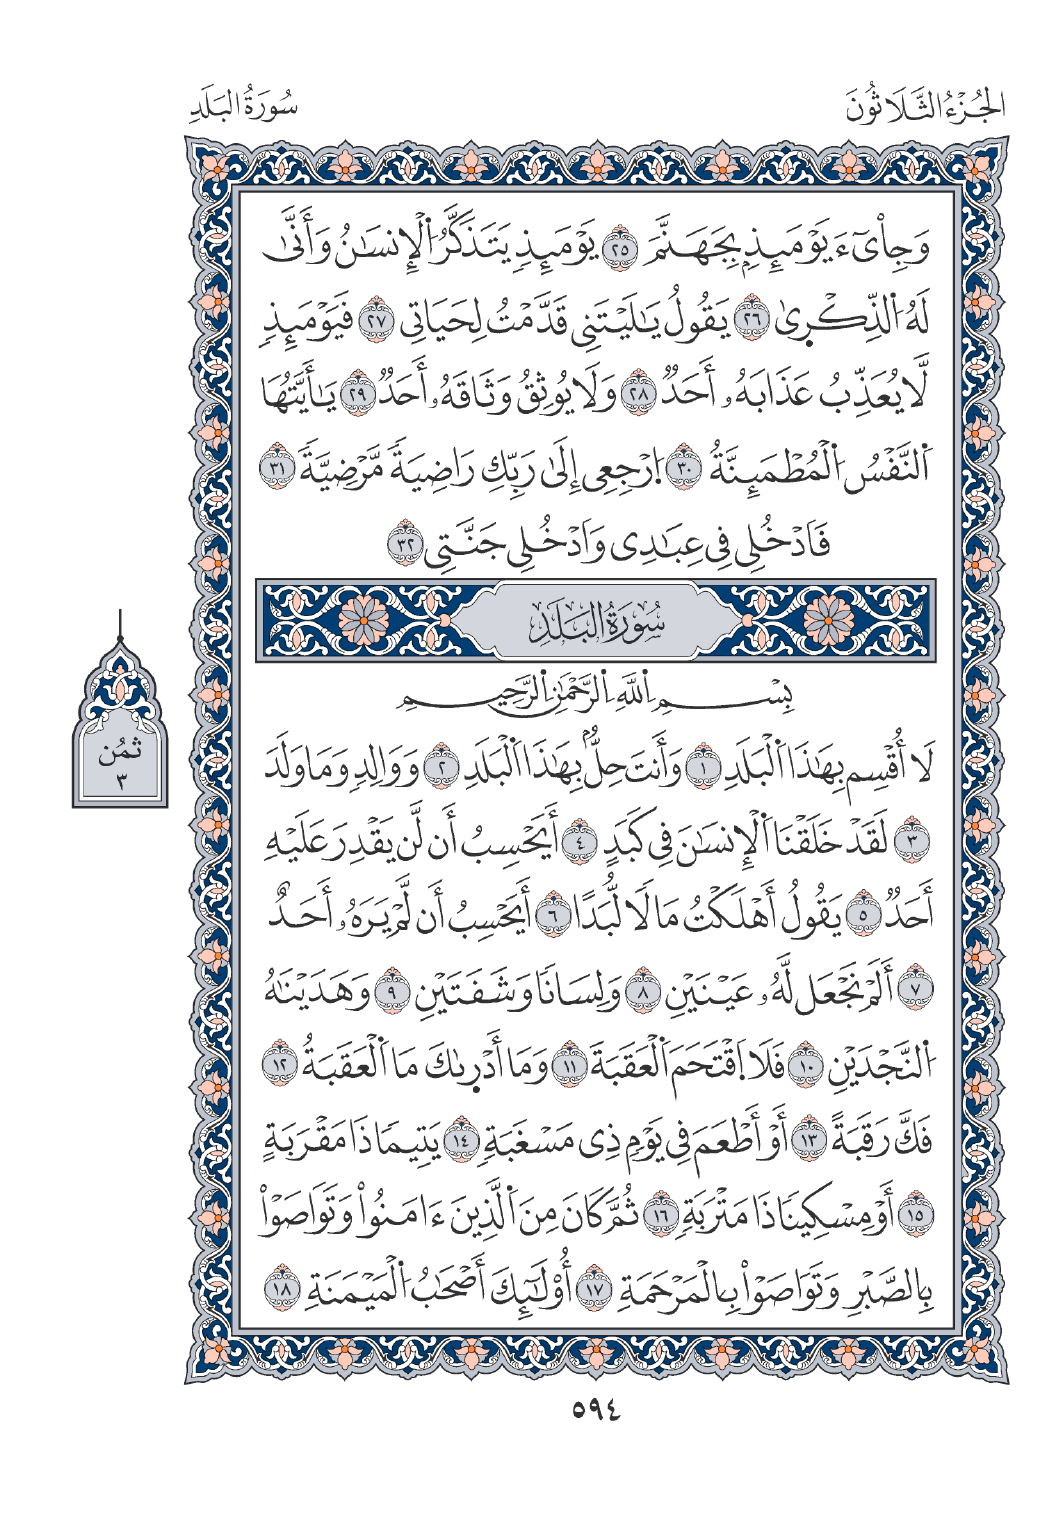 الجُزْءُ الثَّلَاثُونَ
سُورَةُ البَلَدِ
وَجِاْيٓءَ يَوْمَئِذِۭ بِجَهَنَّمَ ٢٥ يَوْمَئِذٖ يَتَذَكَّرُ اُ۬لْإِنسَٰنُ وَأَنّٰى
لَهُ اُ۬لذِّكْر۪ىٰ ٢٦ يَقُولُ يَٰلَيْتَنِى قَدَّمْتُ لِحَيَاتِى ٢٧ فَيَوْمَئِذٖ
لَّا يُعَذِّبُ عَذَابَهُۥ أَحَدٞ ٢٨ وَلَا يُوثِقُ وَثَاقَهُۥ أَحَدٞ ٢٩ يَٰأَيَّتُهَا
اَ۬لنَّفْسُ اُ۬لْمُطْمَئِنَّةُ ٣٠ اُ۪رْجِعِى إِلَىٰ رَبِّكِ رَاضِيَةٗ مَّرْضِيَّةٗ ٣١
فَادْخُلِى فِى عِبَٰدِى وَادْخُلِى جَنَّتِى ٣٢
سُورَةُ البَلَدِ
بِسْمِ اِ۬للَّهِ اِ۬لرَّحْمَٰنِ اِ۬لرَّحِيمِ
لَا أُقْسِم بِهَٰذَا اَ۬لْبَلَدِ ١ وَأَنتَ حِلُّۢ بِهَٰذَا اَ۬لْبَلَدِ ٢ وَوَالِدٖ وَمَا وَلَدَ
٣ لَقَدْ خَلَقْنَا اَ۬لْإِنسَٰنَ فِى كَبَدٍ ٤ أَيَحْسِبُ أَن لَّن يَقْدِرَ عَلَيْهِ
أَحَدٞ ٥ يَقُولُ أَهْلَكْتُ مَالٗا لُّبَدًا ٦ أَيَحْسِبُ أَن لَّمْ يَرَهُۥ أَحَدٌ
٧ أَلَمْ نَجْعَل لَّهُۥ عَيْنَيْنِ ٨ وَلِسَانٗا وَشَفَتَيْنِ ٩ وَهَدَيْنَٰهُ
اُ۬لنَّجْدَيْنِ ١٠ فَلَا اَ۪قْتَحَمَ اَ۬لْعَقَبَةَ ١١ وَمَا أَدْر۪ىٰكَ مَا اَ۬لْعَقَبَةُ ١٢
فَكَّ رَقَبَةً ١٣ أَوْ أَطْعَمَ فِى يَوْمٖ ذِى مَسْغَبَةٖ ١٤ يَتِيمٗا ذَا مَقْرَبَةٍ
١٥ أَوْ مِسْكِينٗا ذَا مَتْرَبَةٖ ١٦ ثُمَّ كَانَ مِنَ اَ۬لَّذِينَ ءَامَنُواْ وَتَوَاصَوْاْ
بِالصَّبْرِ وَتَوَاصَوْاْ بِالْمَرْحَمَةِ ١٧ أُوْلَٰٓئِكَ أَصْحَٰبُ اُ۬لْمَيْمَنَةِ ١٨
ثمُن
٣
٥٩٤